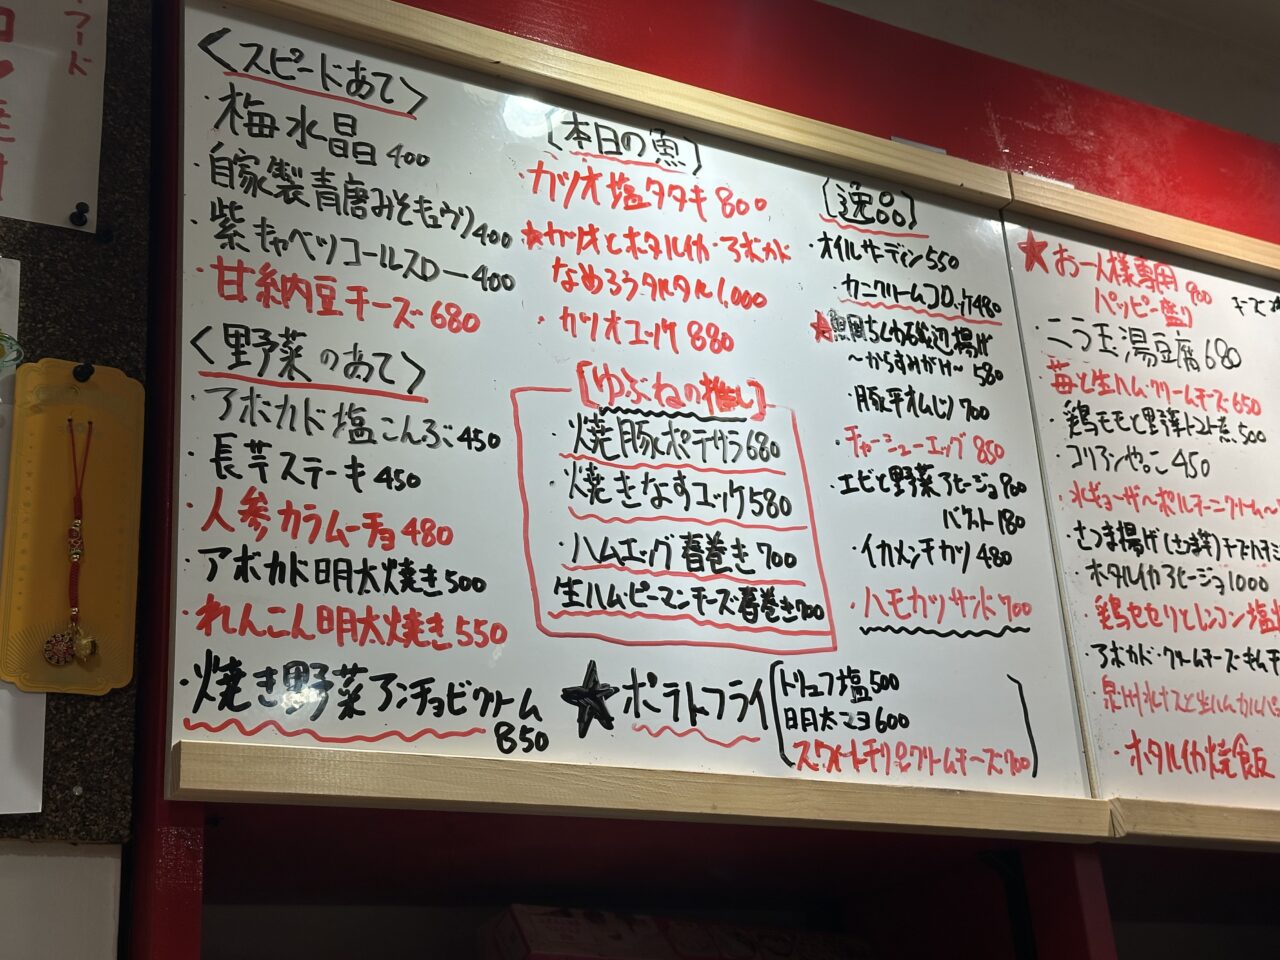 〈スピードあて〉
・梅水晶 400
・自家製青唐みそキュウリ 400
・紫キャベツコールスロー 400
・甘納豆チーズ 680
〈野菜のあて〉
・アボカド塩こんぶ 450
・長芋ステーキ 450
・人参カラムーチョ 480
・アボカド明太焼き 500
・れんこん明太焼き 550
・焼き野菜アンチョビクリーム
850
[本日の魚]
・カツオ塩タタキ 800
★カツオとホタルイカ・アボカド
なめろうタルタル 1,000
・カツオユッケ 880
[ゆぶねの推し]
・焼豚ポテサラ 680
・焼きなすユッケ 580
・ハムエッグ春巻き 700
生ハム・ピーマンチーズ春巻き 700
★ポテトフライ
トリュフ塩 500
明太マヨ 600
スウィートチリ&クリームチーズ 700
[逸品]
・オイルサーディン 550
・カニクリームコロッケ 480
～からすみがけ～ 580
・豚平オムレツ 700
・チャーシューエッグ 850
・エビと野菜アヒージョ 900
バゲット 180
・イカメンチカツ 480
・ハモカツサンド 700
★お一人様専用
ハッピー盛り 900
・ニラ玉湯豆腐 680
・苺と生ハム・クリームチーズ 650
・鶏モモと野菜トマト煮 500
・コリアンやっこ 450
・水ギョーザ～ポルチーニクリーム～
・さつま揚げ
・ホタルイカアヒージョ 1000
・鶏セセリとレンコン塩
・アボカド・クリームチーズキムチ
・泉州水ナスと生ハム
・ホタルイカ焼飯